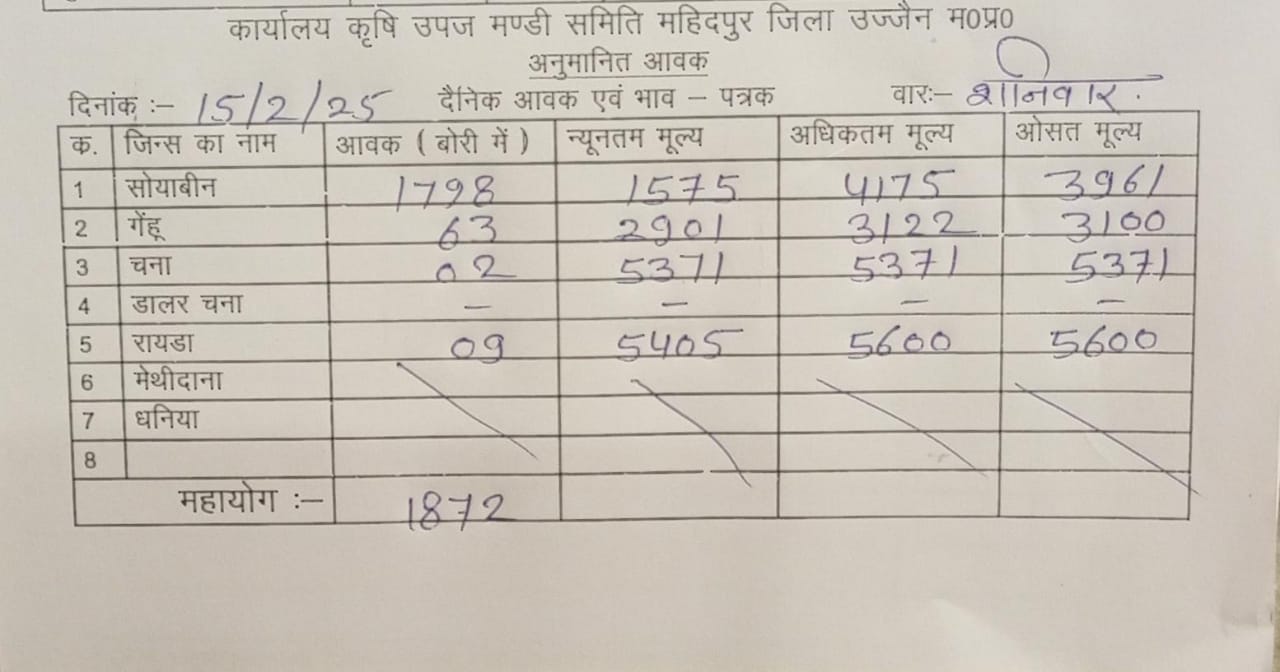 कार्यालय कृषि उपज मण्डी समिति महिदपुर जिला उज्जैन म0प्र0
अनुमानित आवक
दिनांक :– 15/2/25 दैनिक आवक एवं भाव – पत्रक वारः– शनिवार.
क. जिन्स का नाम आवक ( बोरी में ) न्यूनतम मूल्य अधिकतम मूल्य ओसत मूल्य
1 सोयाबीन 1798 1575 4175 3961
2 गेंहू 63 2901 3122 3100
3 चना 02 5371 5371 5371
4 डालर चना – – – –
5 रायडा 09 5405 5600 5600
6 मेथीदाना
7 धनिया
8
महायोग :– 1872